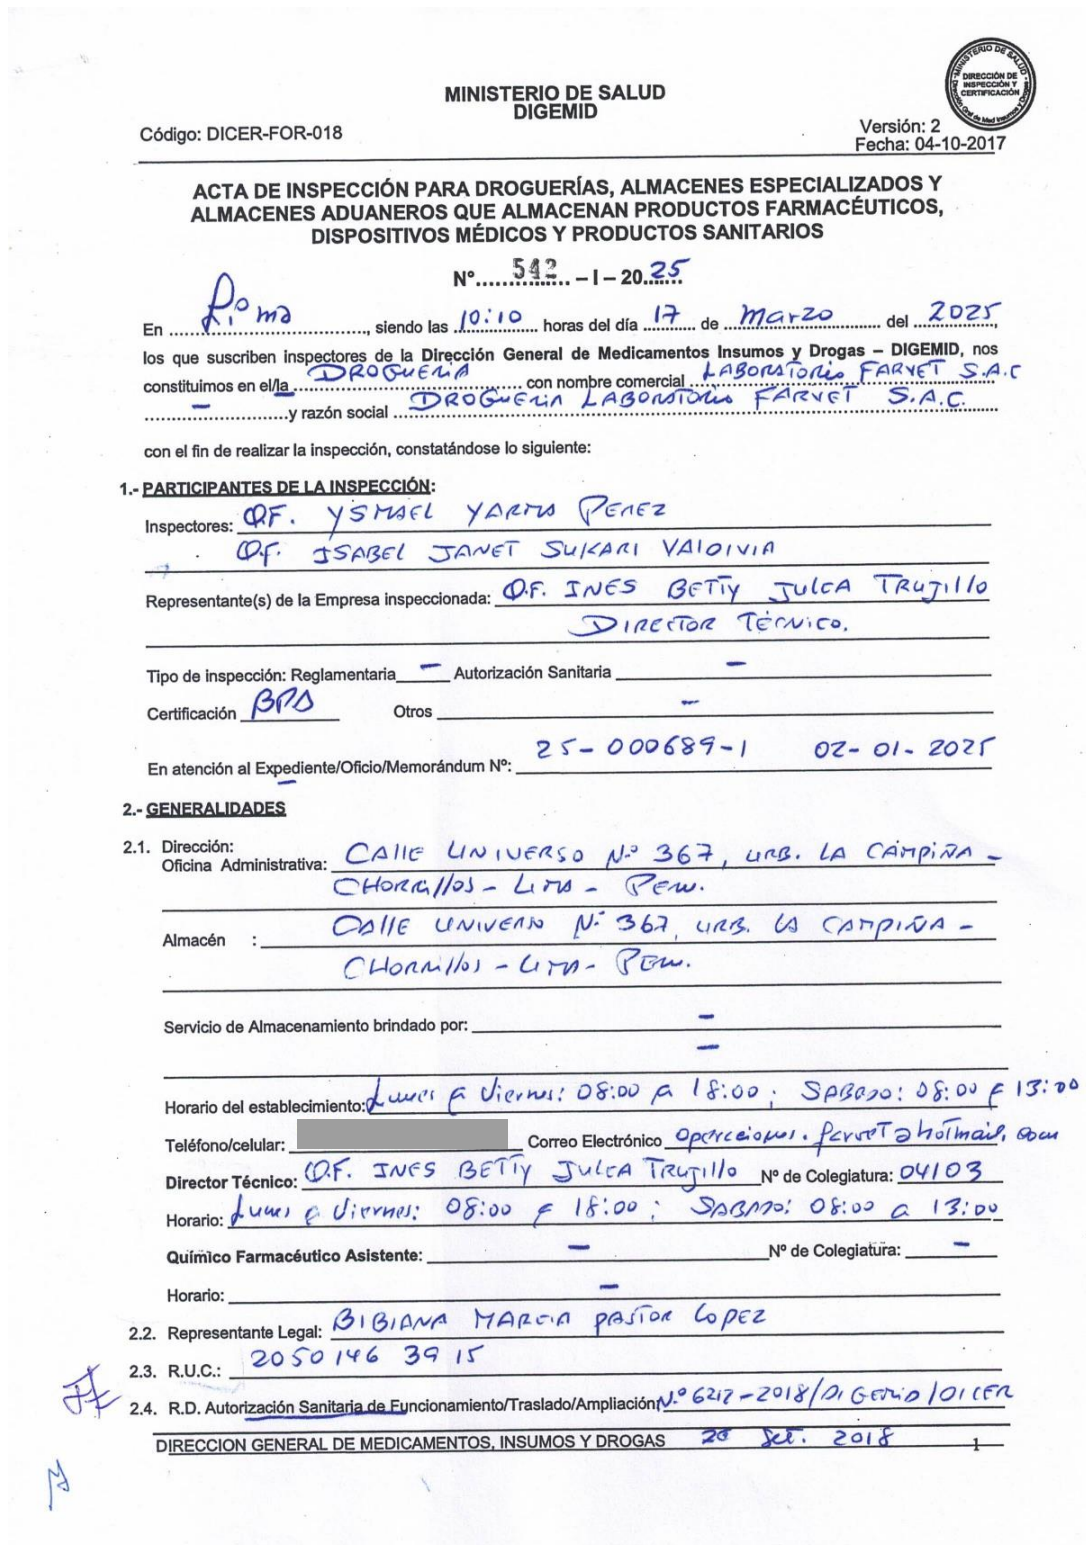 MINISTERIO DE SALUD
DIGEMID
MINISTERIO DE SALUD
DIRECCIÓN DE
INSPECCIÓN Y
CERTIFICACIÓN
Código: DICER-FOR-018
Versión: 2
Fecha: 04-10-2017
ACTA DE INSPECCIÓN PARA DROGUERÍAS, ALMACENES ESPECIALIZADOS Y
ALMACENES ADUANEROS QUE ALMACENAN PRODUCTOS FARMACÉUTICOS,
DISPOSITIVOS MÉDICOS Y PRODUCTOS SANITARIOS
Nº...... 542 ...... – I – 20.25
En Lima, siendo las 10:10 horas del día 17 de Marzo del 2025,
los que suscriben inspectores de la Dirección General de Medicamentos Insumos y Drogas – DIGEMID, nos
constituimos en el/la DROGUERIA con nombre comercial LABORATORIO FARVET S.A.C
– y razón social DROGUERIA LABORATORIO FARVET S.A.C.
con el fin de realizar la inspección, constatándose lo siguiente:
1.- PARTICIPANTES DE LA INSPECCIÓN:
Inspectores: Q.F. YSMAEL YARMA PEREZ
Q.F. ISABEL JANET SUKARI VALDIVIA
Representante(s) de la Empresa inspeccionada: Q.F. INES BETTY JULCA TRUJILLO
DIRECTOR TÉCNICO.
Tipo de inspección: Reglamentaria – Autorización Sanitaria –
Certificación BPA Otros –
En atención al Expediente/Oficio/Memorándum Nº: 25-000689-1 02-01-2025
2.- GENERALIDADES
2.1. Dirección:
Oficina Administrativa: CALLE UNIVERSO Nº 367, URB. LA CAMPIÑA –
CHORRILLOS – LIMA – PERU.
Almacén : CALLE UNIVERSO Nº 367, URB. LA CAMPIÑA –
CHORRILLOS – LIMA – PERU.
Servicio de Almacenamiento brindado por: –
–
Horario del establecimiento: Lunes a Viernes: 08:00 a 18:00; SABADO: 08:00 a 13:00
Teléfono/celular: Correo Electrónico operaciones.farvet@hotmail.com
Director Técnico: Q.F. INES BETTY JULCA TRUJILLO Nº de Colegiatura: 04103
Horario: Lunes a Viernes: 08:00 a 18:00; SABADO: 08:00 a 13:00
Químico Farmacéutico Asistente: – Nº de Colegiatura: –
Horario: –
2.2. Representante Legal: BIBIANA MARCIA PASTOR LOPEZ
2.3. R.U.C.: 2050146 39 15
2.4. R.D. Autorización Sanitaria de Funcionamiento/Traslado/Ampliación Nº 6217-2018/DIGEMID/DICER
DIRECCION GENERAL DE MEDICAMENTOS, INSUMOS Y DROGAS 20 Set. 2018 1